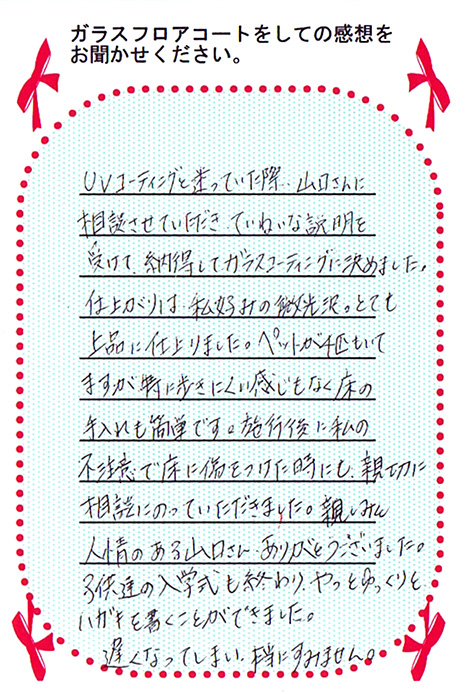 ガラスフロアコートをしての感想を
お聞かせください。
UVコーティングと迷っていた際、山口さんに
相談させていただき、ていねいな説明を
受けて、納得してガラスコーティングに決めました。
仕上がりは、私好みの微光沢。とても
上品に仕上りました。ペットが4匹もいて
ますが特に歩きにくい感じもなく床の
手入れも簡単です。施行後に私の
不注意で床に傷をつけた時にも、親切に
相談にのっていただきました。親しみん
人情のある山口さん、ありがとうございました。
子供達の入学式も終わり、やっとゆっくりと
ハガキを書くことができました。
遅くなってしまい、本当にすみません。